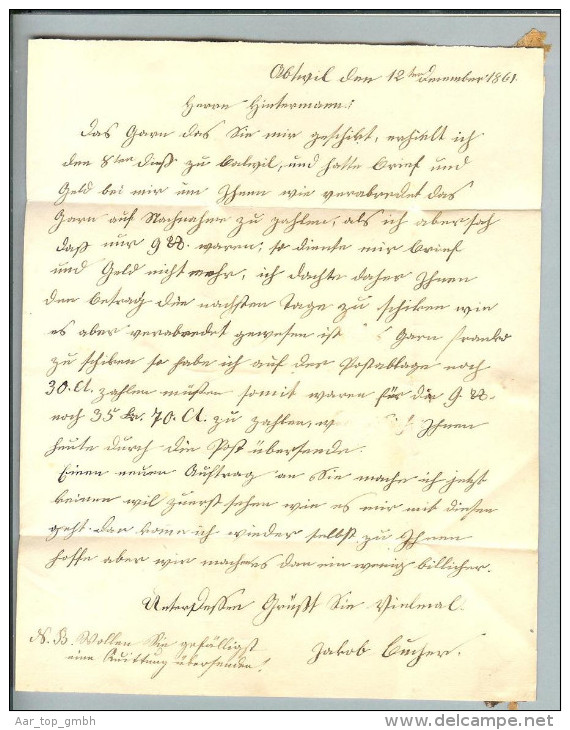 Abtwil den 12ten December 1861.
Herrn Hintermann!
Das Garn das Sie mir geschikt, erhielt ich
den 8ten dieß zu Balwil, und hatte Brief und
Geld bei mir um Ihnen wie verabredet das
Garn auf Nachnahme zu zahlen, als ich aber sah
daß nur 9 ℔. waren, so diente mir Brief
und Geld nicht mehr, ich dachte daher Ihnen
den betrag die nächsten Tage zu schiken wie
es aber verabredet gewesen ist Garn franko
zu schiken so habe ich auf der Postablage noch
30. Ct. zahlen müßen somit waren für die 9 ℔.
noch 35 fr. 70. Ct. zu zahlen, Ihnen
heute durch die Post übersende.
Einen neuen Auftrag an Sie mache ich jetzt
keinen wil zuerst sehen wie es mir mit diesen
geht. dan kome ich wieder selbst zu Ihnen
hoffe aber wir machen es dan ein wenig billicher.
Unterdessen Grüßt Sie Vielmal.
N. B. Wollen Sie gefälligst
eine Quittung übersenden!
Jakob Bucher.
Aar_top_gmbh
www.delcampe.net